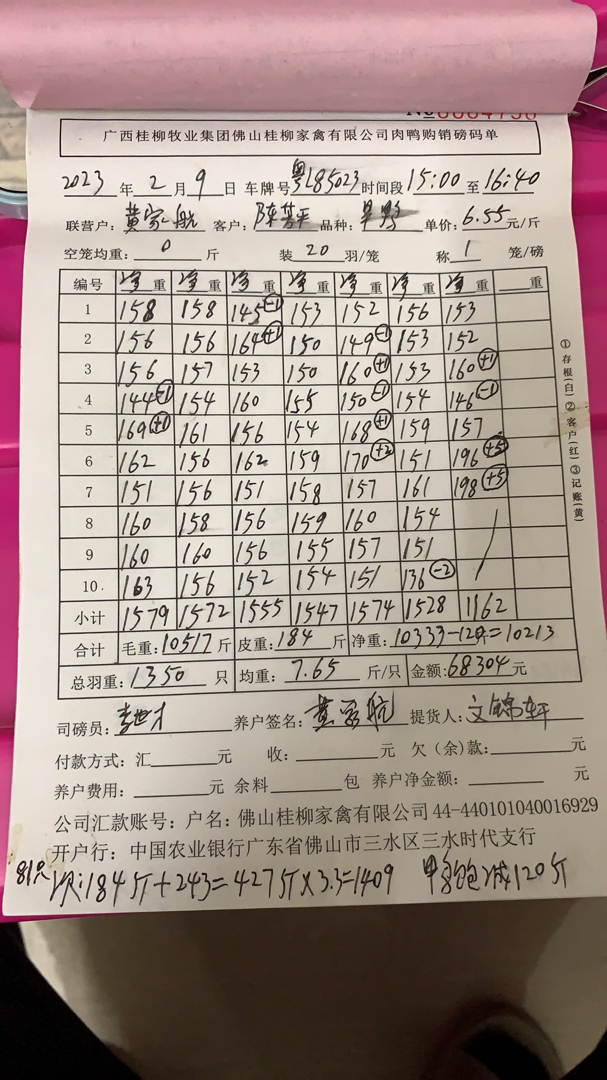 广西桂柳牧业集团佛山桂柳家禽有限公司肉鸭购销磅码单
2023 年 2 月 9 日 车牌号 粤L85023 时间段 15:00 至 16:40
联营户: 黄家航 客户: 陈 平 品种: 单价: 6.55 元/斤
空笼均重: 0 斤 装 20 羽/笼 称 1 笼/磅
编号 净重 净重 净重 净重 净重 净重 净重 重
1 158 158 145 -1 153 152 156 153
2 156 156 164 +1 150 149 -1 153 152
3 156 157 153 150 160 +1 153 160 +1
4 144 -1 154 160 155 150 -1 154 146 -1
5 169 +1 161 156 154 168 +1 159 157
6 162 156 162 159 170 +2 151 196 +5
7 151 156 151 158 157 161 198 +5
8 160 158 156 159 160 154
9 160 160 156 155 157 151
10. 163 156 152 154 151 136 -2
小计 1579 1572 1555 1547 1574 1528 1162
合计 毛重: 10517 斤 皮重: 184 斤 净重: 10333-120=10213
总羽重: 1350 只 均重: 7.65 斤/只 金额: 68304 元
司磅员: 养户签名: 黄家航 提货人: 文锦轩
付款方式: 汇 元 收: 元 欠(余)款: 元
养户费用: 元 余料 包 养户净金额: 元
公司汇款账号: 户名: 佛山桂柳家禽有限公司 44-440101040016929
开户行: 中国农业银行广东省佛山市三水区三水时代支行
81只 次:184斤+243=427斤×3.3=1409 饱减120斤
①存根(白)②客户(红)③记账(黄)